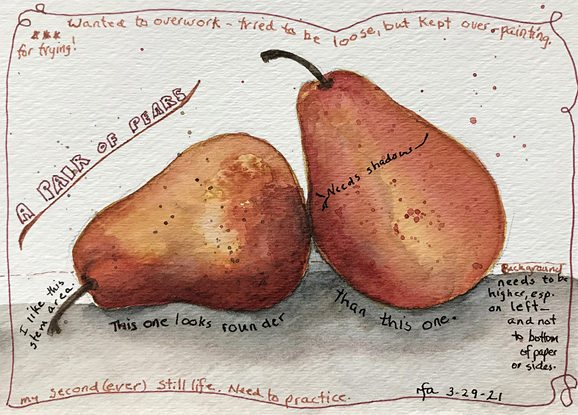 Wanted to overwork - tried to be loose, but kept over-painting.
*** for trying!
A PAIR OF PEARS
Needs shadow
I like this
stem area.
This one looks rounder
than this one.
Background
needs to be
higher, esp.
on left—
and not
to bottom
of paper
or sides.
my second (ever) still life. Need to practice.
rfa 3-29-21